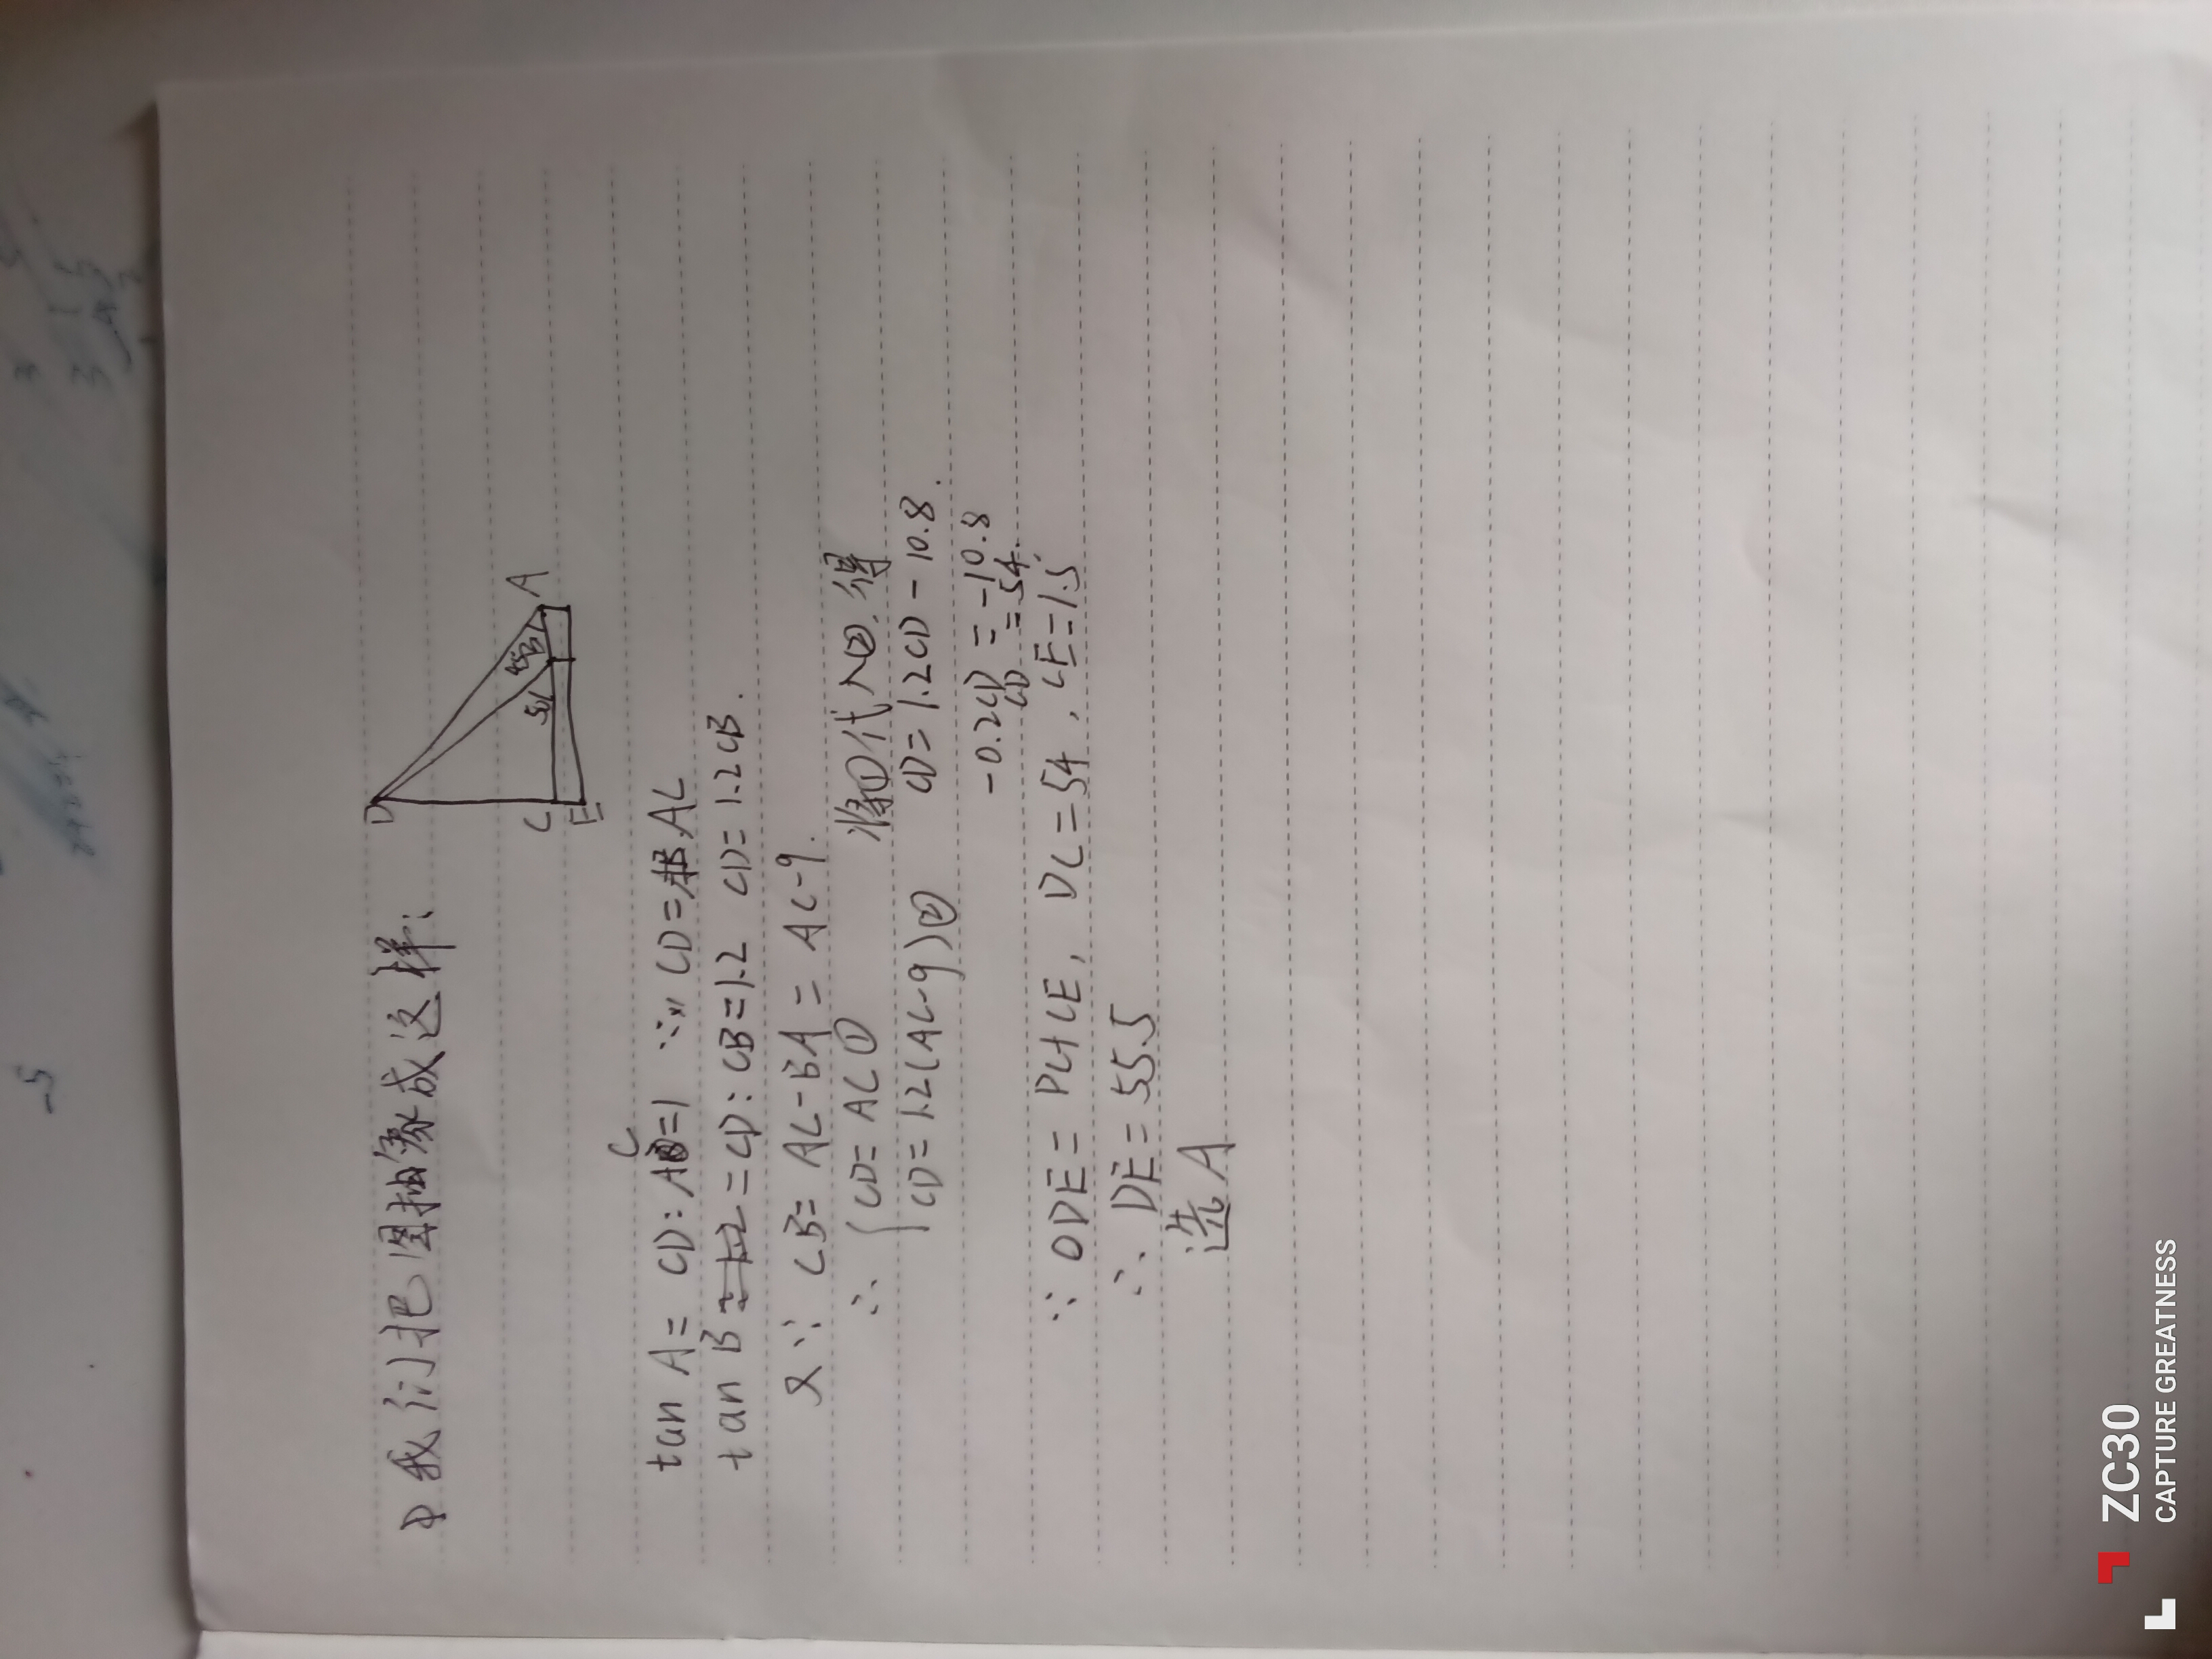 我们把图抽象成这样:
D
A
45°
50°
C
E
tan A = CD:AC=1 ∴ CD=AC
tan B =CD:CB=1.2 CD=1.2CB.
又∵ CB= AC-BA = AC-9.
∴ { CD= AC① 将①代入②,得
CD=1.2(AC-9)② CD=1.2CD-10.8.
-0.2CD=-10.8
CD=54.
∵ DE= DC+CE, DC=54, CE=1.5
∴ DE=55.5
选A
ZC30
CAPTURE GREATNESS